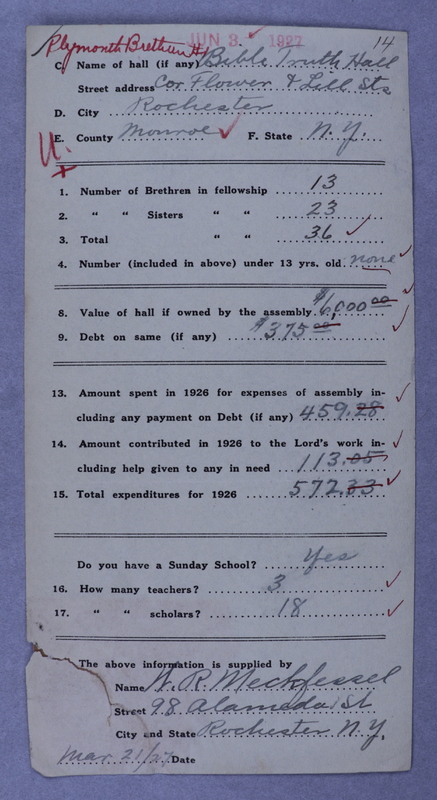 JUN 3 1927
14
Plymouth Brethren II
C. Name of hall (if any) Bible Truth Hall
Street address Cor Flower & Lill Sts
D. City Rochester
E. County Monroe F. State N.Y.
U.
1. Number of Brethren in fellowship 13
2. " " Sisters " " 23
3. Total " " 36
4. Number (included in above) under 13 yrs. old. none
8. Value of hall if owned by the assembly. $6,000 00
9. Debt on same (if any) $375 00
13. Amount spent in 1926 for expenses of assembly in-
cluding any payment on Debt (if any) 459.28
14. Amount contributed in 1926 to the Lord's work in-
cluding help given to any in need 113.05
15. Total expenditures for 1926 572.33
Do you have a Sunday School? Yes
16. How many teachers? 3
17. " " scholars? 18
The above information is supplied by
Name W. R. Meckfessel
Street 98 Alameda St
City and State Rochester N.Y.
Mar 21/27 Date